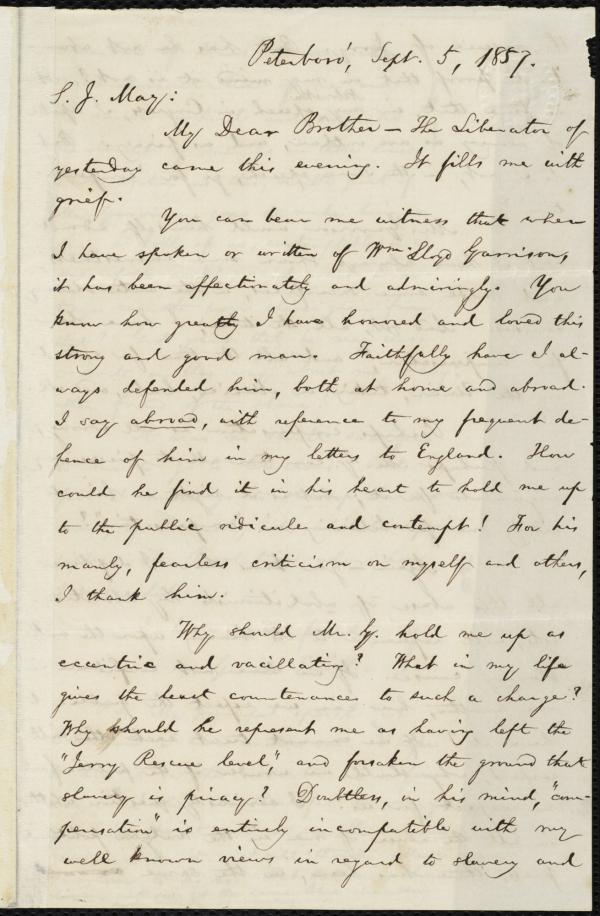 Peterboro', Sept. 5, 1857.
S. J. May:
My Dear Brother — The Liberator of
yesterday came this evening. It fills me with
grief.
You can bear me witness that when
I have spoken or written of Wm. Lloyd Garrison,
it has been affectionately and admiringly. You
know how greatly I have honored and loved this
strong and good man. Faithfully have I al-
ways defended him, both at home and abroad.
I say abroad, with reference to my frequent de-
fence of him in my letters to England. How
could he find it in his heart to hold me up
to the public ridicule and contempt! For his
manly, fearless criticism on myself and others,
I thank him.
Why should Mr. G. hold me up as
eccentric and vacillating? What in my life
gives the least countenance to such a charge?
Why should he represent me as having left the
"Jerry Rescue level," and forsaken the ground that
slavery is piracy? Doubtless, in his mind, "com-
pensation" is entirely incompatible with my
well known views in regard to slavery and